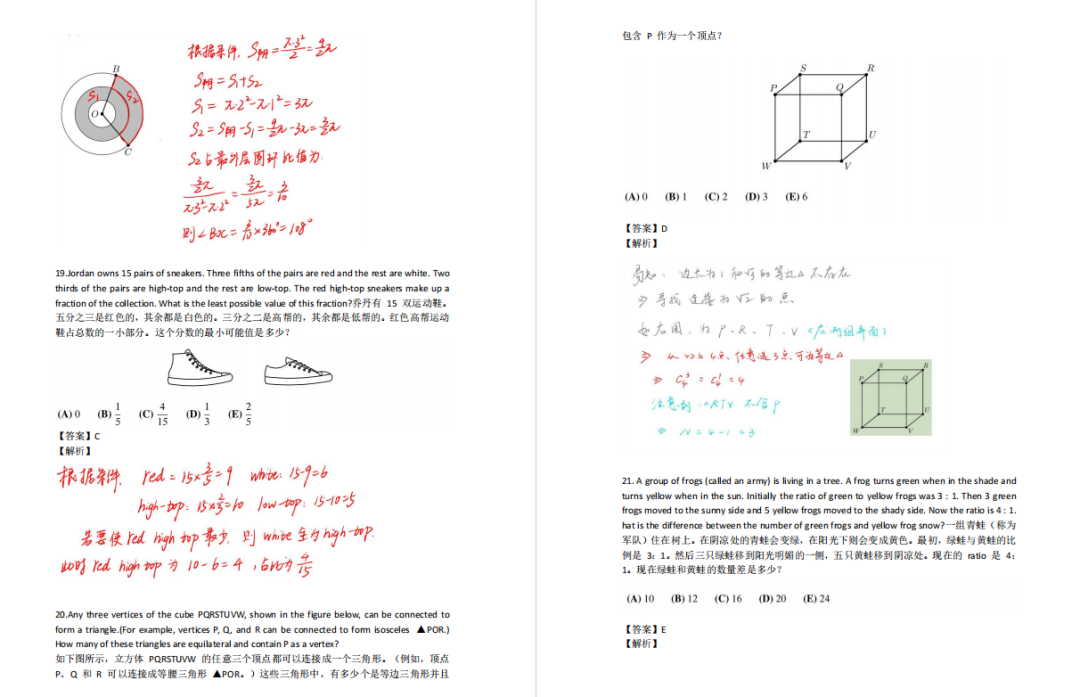 B
S1
S2
O
C
根据条件, S阴=π·3²/2=9/2π
S阴=S1+S2
S1=π·2²-π·1²=3π
S2=S阴-S1=9/2π-3π=3/2π
S2占最外层圆环比值为
3/2π/π·3²-π·2²=3/2π/5π=3/10
则∠BOC=3/10×360°=108°
19.Jordan owns 15 pairs of sneakers. Three fifths of the pairs are red and the rest are white. Two
thirds of the pairs are high-top and the rest are low-top. The red high-top sneakers make up a
fraction of the collection. What is the least possible value of this fraction?乔丹有 15 双运动鞋。
五分之三是红色的，其余都是白色的。三分之二是高帮的，其余都是低帮的。红色高帮运动
鞋占总数的一小部分。这个分数的最小可能值是多少？
(A) 0 (B) 1/5 (C) 4/15 (D) 1/3 (E) 2/5
【答案】C
【解析】
根据条件, red=15×3/5=9 white: 15-9=6
high-top: 15×2/3=10 low-top: 15-10=5
若要使red high top最少, 则 white 全为high-top.
此时 red high top 为 10-6=4, 占比为 4/15
20.Any three vertices of the cube PQRSTUVW, shown in the figure below, can be connected to
form a triangle.(For example, vertices P, Q, and R can be connected to form isosceles ▲POR.)
How many of these triangles are equilateral and contain P as a vertex?
如下图所示，立方体 PQRSTUVW 的任意三个顶点都可以连接成一个三角形。（例如，顶点
P、Q 和 R 可以连接成等腰三角形 ▲POR。）这些三角形中，有多少个是等边三角形并且
包含 P 作为一个顶点？
S
R
P
Q
T
U
W
V
(A) 0 (B) 1 (C) 2 (D) 3 (E) 6
【答案】D
【解析】
易知, 边长为1和√3的等边△不存在
⇒寻找连接为√2的点
如右图, 为 P、R、T、V (在两组平面)
⇒ 4点, 任意选3点, 可为等边△
⇒ C₄³=C₄¹=4
注意到, △RTV 不含P
⇒ N=4-1=3
S
R
P
Q
T
U
W
V
21. A group of frogs (called an army) is living in a tree. A frog turns green when in the shade and
turns yellow when in the sun. Initially the ratio of green to yellow frogs was 3 : 1. Then 3 green
frogs moved to the sunny side and 5 yellow frogs moved to the shady side. Now the ratio is 4 : 1.
hat is the difference between the number of green frogs and yellow frog snow?一组青蛙（称为
军队）住在树上。在阴凉处的青蛙会变绿，在阳光下则会变成黄色。最初，绿蛙与黄蛙的比
例是 3：1。然后三只绿蛙移到阳光明媚的一侧，五只黄蛙移到阴凉处。现在的 ratio 是 4：
1。现在绿蛙和黄蛙的数量差是多少？
(A) 10 (B) 12 (C) 16 (D) 20 (E) 24
【答案】E
【解析】